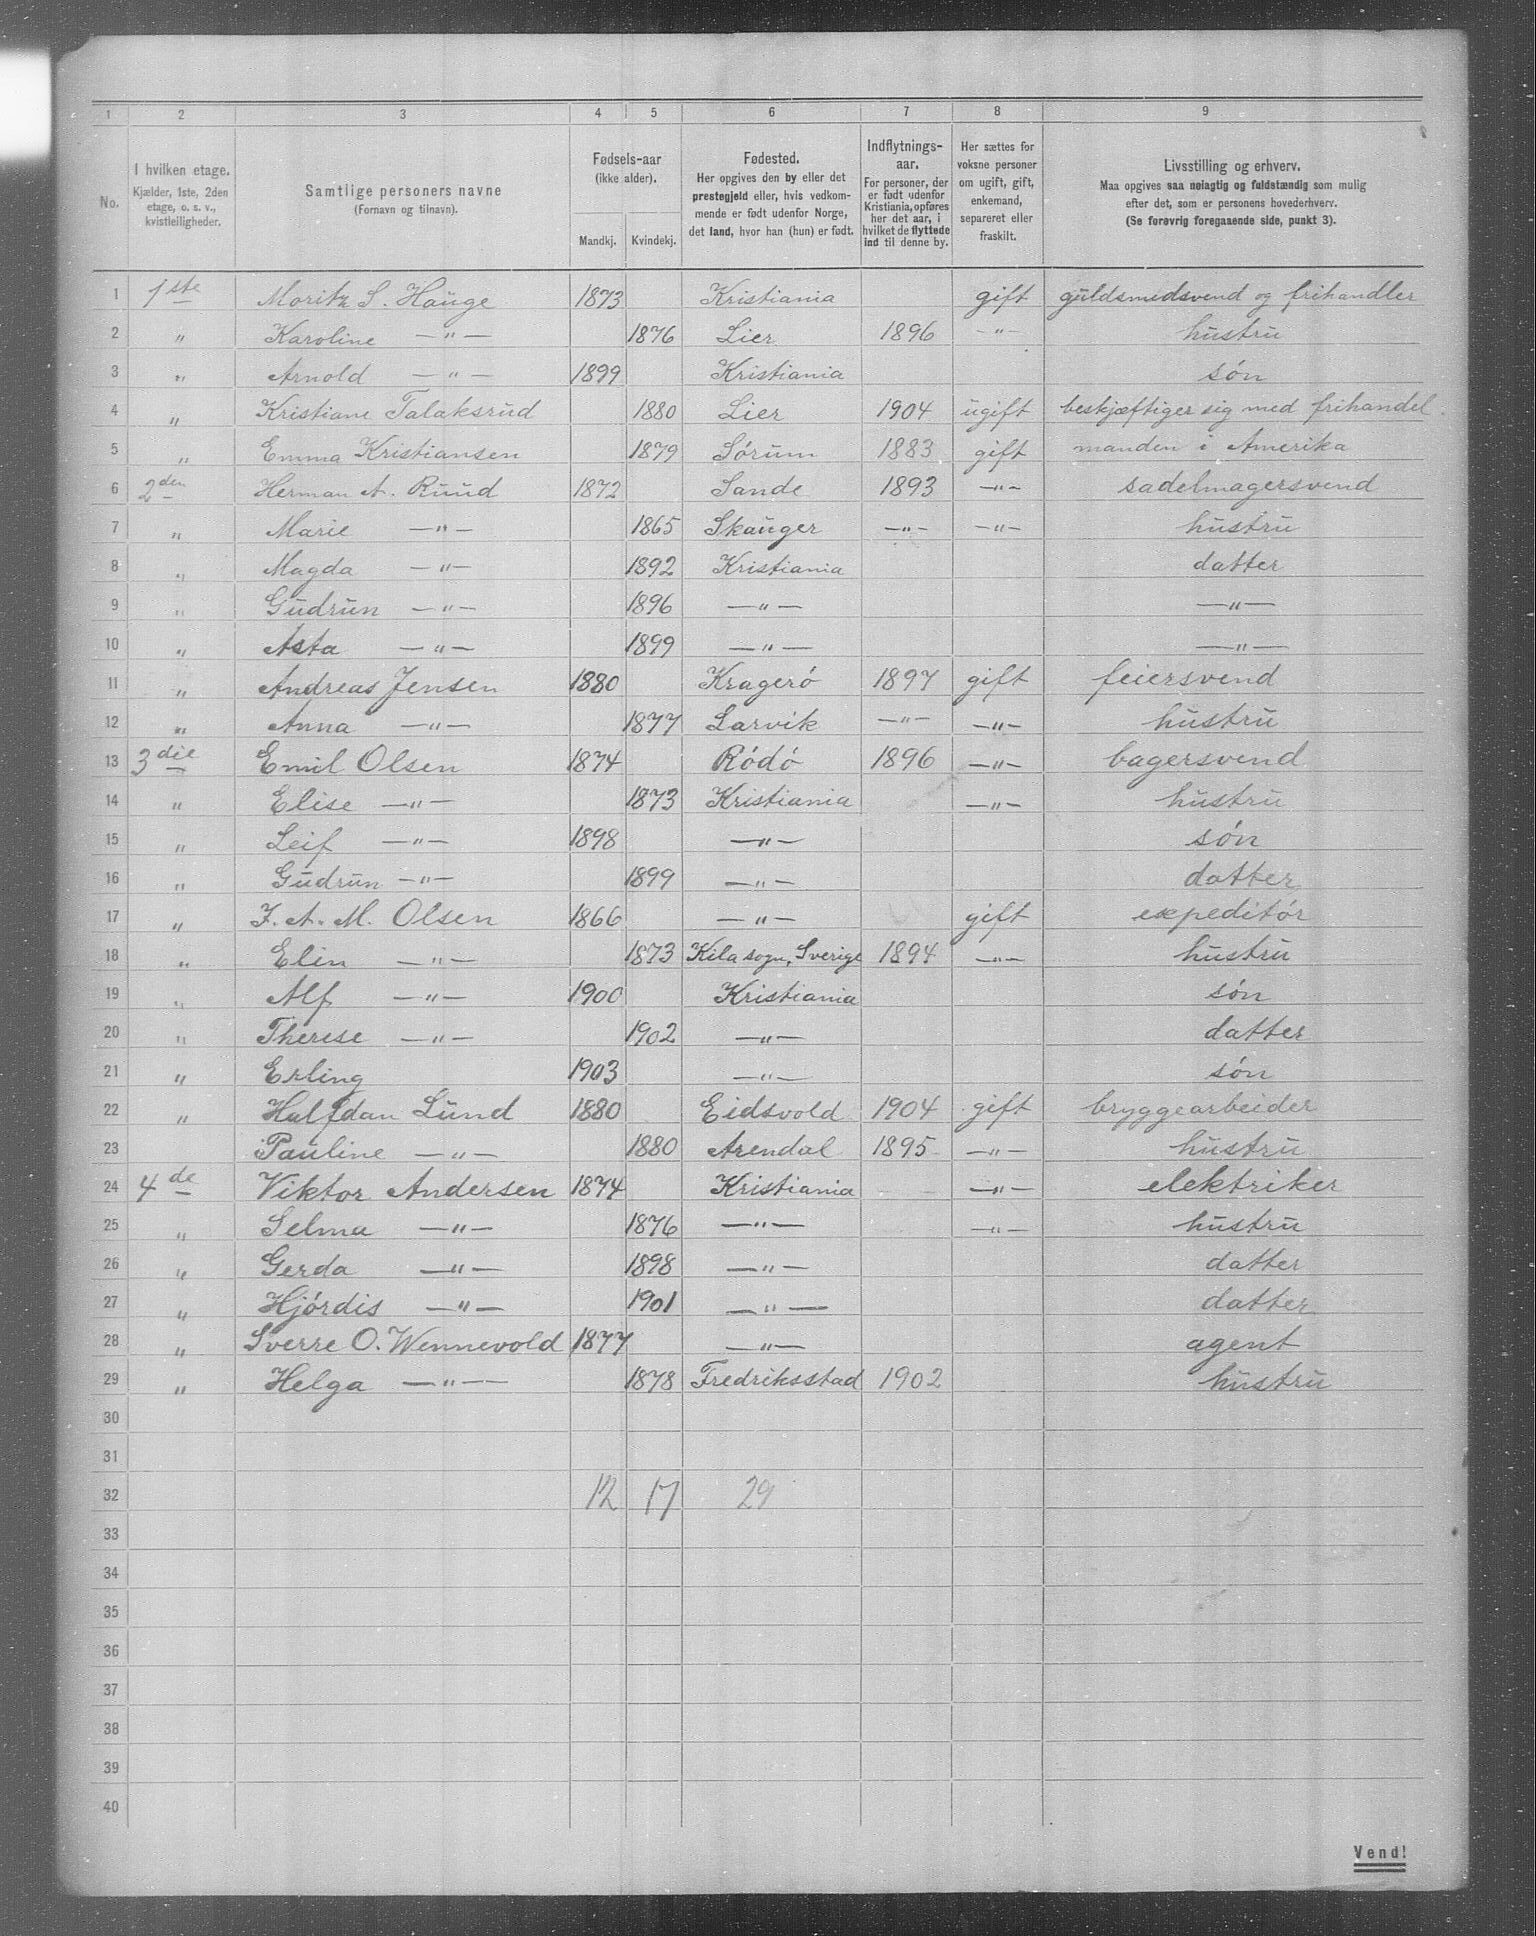 1 2 3 4 5 6 7 8 9
No.
I hvilken etage. Kjælder, 1ste, 2den etage, o. s. v., kvistleiligheder.
Samtlige personers navne (Fornavn og tilnavn).
Fødsels-aar (ikke alder). Mandkj. Kvindekj.
Fødested. Her opgives den by eller det prestegjeld eller, hvis vedkommende er født udenfor Norge, det land, hvor han (hun) er født.
Indflytnings-aar. For personer, der er født udenfor Kristiania, opføres her det aar, i hvilket de flyttede ind til denne by.
Her sættes for voksne personer om ugift, gift, enkemand, separeret eller fraskilt.
Livsstilling og erhverv. Maa opgives saa nøiagtig og fuldstændig som mulig efter det, som er personens hovederhverv. (Se forøvrig foregaaende side, punkt 3).
1 1ste Moritz S. Hauge 1873 Kristiania gift guldsmedsvend og frihandler
2 " Karoline —"— 1876 Lier 1896 —"— hustru
3 " Arnold —"— 1899 Kristiania søn
4 " Kristiane Talaksrud 1880 Lier 1904 ugift beskjæftiger sig med frihandel.
5 " Emma Kristiansen 1879 Sórum 1883 gift manden i Amerika
6 2den Herman A. Ruud 1872 Sande 1893 —"— sadelmagersvend
7 " Marie —"— 1865 Skauger —"— —"— hustru
8 " Magda —"— 1892 Kristiania datter
9 " Gudrun —"— 1896 —"— —"—
10 " Asta —"— 1899 —"— —"—
11 " Andreas Jensen 1880 Krageró 1897 gift feiersvend
12 " Anna —"— 1877 Larvik —"— —"— hustru
13 3die Emil Olsen 1874 Ródó 1896 —"— bagersvend
14 " Elise —"— 1873 Kristiania —"— hustru
15 " Leif —"— 1898 —"— són
16 " Gudrun —"— 1899 —"— datter
17 " J. A. M. Olsen 1866 —"— gift expeditór
18 " Elin —"— 1873 Kila sogn, Sverige 1894 —"— hustru
19 " Alf —"— 1900 Kristiania són
20 " Therese —"— 1902 —"— datter
21 " Erling 1903 —"— són
22 " Halfdan Lund 1880 Eidsvold 1904 gift bryggearbeider
23 Pauline —"— 1880 Arendal 1895 —"— hustru
24 4de Viktor Andersen 1874 Kristiania —"— elektriker
25 " Selma —"— 1876 —"— —"— hustru
26 " Gerda —"— 1898 —"— datter
27 " Hjórdis —"— 1901 —"— datter
28 " Sverre O. Wennevold 1877 —"— agent
29 " Helga —"— 1878 Fredriksstad 1902 hustru
30
31
32 12 17 29
33
34
35
36
37
38
39
40
Vend!